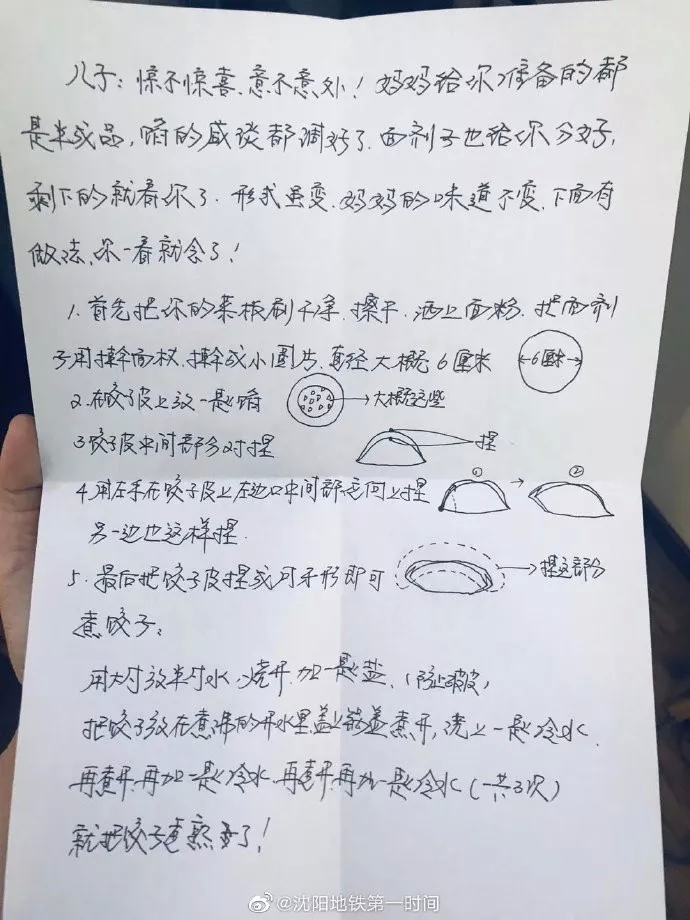 儿子：惊不惊喜、意不意外！妈妈给你准备的都
是半成品，馅的咸淡都调好了．面剂子也给你分好，
剩下的就看你了．形式虽变．妈妈的味道不变．下面有
做法、你一看就会了！
1．首先把你的菜板刷干净．擦干．洒上面粉．把面剂
子用擀面杖．擀成小圆片．直径大概6厘米
←6厘米→
2．在饺子皮上放一些馅
大概这些
3 饺子皮中间部分对捏
捏
4．用左手在饺子皮上左边口中间部位向上捏
① → ②
另一边也这样捏．
5．最后把饺子皮捏成月牙形即可
捏这部分
煮饺子：
用大付放半付水，烧开．加一些盐．（防止破皮）
把饺子放在煮沸的开水里盖上锅盖煮开，浇上一些冷水．
再煮开．再加一些冷水．再煮开．再加一些冷水（一共3次）
就把饺子煮熟了！
@沈阳地铁第一时间